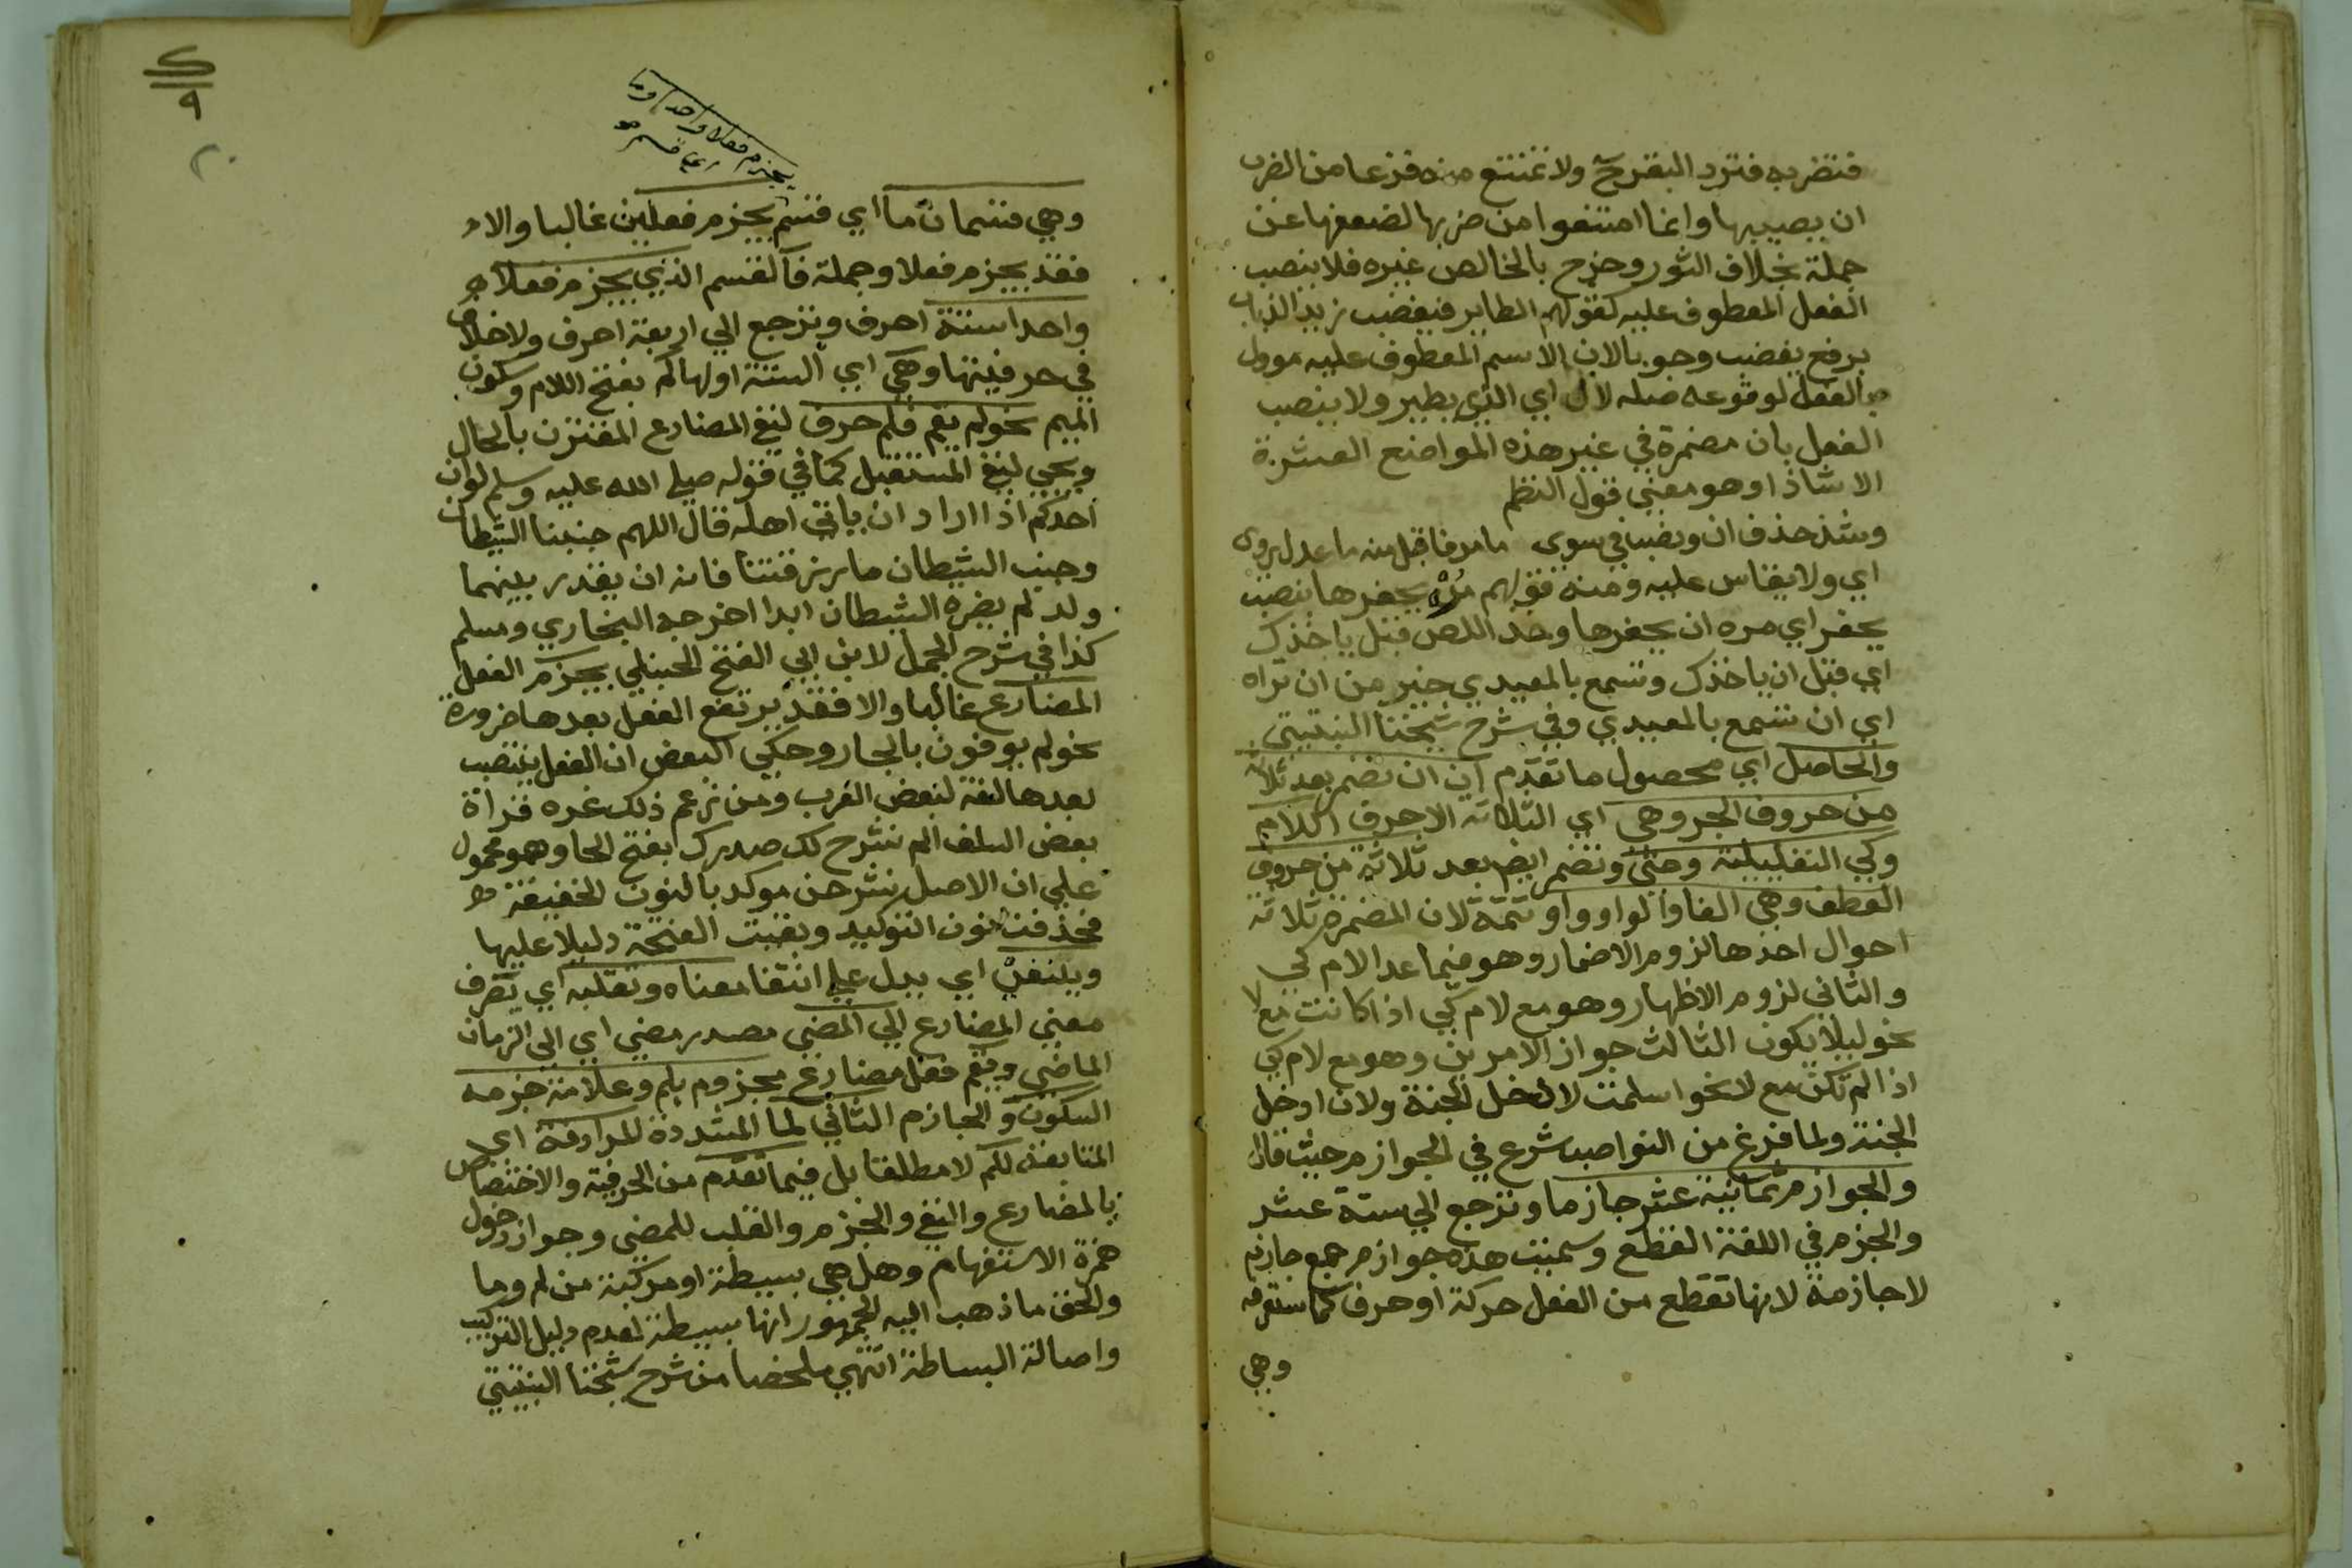 فتضربه فترد البقر ولا تمتنع منه فزعا من الضرب
ان يصيبها وانما امتنعوا من ضربها لضعفها عن
حملة بخلاف الثور وخرج بالخالص غيره فلا ينصب
الفعل المعطوف عليه كقولهم الطاير فيغضب زيد الذباب
برفع يغضب وجوبا لان الاسم المعطوف عليه موول
بالفعل لوقوعه صله لال اي الذي يطير ولا ينصب
الفعل بان مضمرة في غير هذه المواضع العشرة
الا شاذا وهو معني قول النظم
وشذ حذف ان ونصب في سوي ما مر فاقبل منه ما عدل روي
اي ولا يقاس عليه ومنه قولهم مره يحفرها بنصب
يحفر اي مره ان يحفرها وخذ اللص قبل ياخذك
اي قبل ان ياخذك وتسمع بالمعيدي خير من ان تراه
اي ان تسمع بالمعيدي وفي شرح شيخنا النبتيتي
والحاصل اي محصول ما تقدم ان ان تضمر بعد ثلاثة
من حروف الجر وهي اي الثلاثة الاحرف اللام
وكي التعليلية وحتي وتضمر ايض بعد ثلاثة من حروف
العطف وهي الفا والواو واو تتمة لان المضمرة ثلاثة
احوال احدها لزوم الاضمار وهو فيما عدا لام كي
والثاني لزوم الاظهار وهو مع لام كي اذا كانت مع لا
نحو ليلا يكون الثالث جواز الامرين وهو مع لام كي
اذا لم تكن مع لا نحو اسلمت لادخل الجنة ولان ادخل
الجنة ولما فرغ من النواصب شرع في الجوازم حيث قال
والجوازم ثمانية عشر جازما وترجع الي ستة عشر
والجزم في اللغة القطع وسميت هذه جوازم جمع جازم
لا جازمة لانها تقطع من الفعل حركة او حرف كما ستعرفه
وهي
يجزم فعلا واحدا وما
اي قسم
وهي قسمان ما اي قسم يجزم فعلين غالبا والا
فقد يجزم فعلا وجملة فالقسم الذي يجزم فعلا
واحدا ستة احرف وترجع الي اربعة احرف ولا خلاف
في حرفيتها وهي اي الستة اولها لم بفتح اللام وسكون
الميم نحو لم يقم فلم حرف لنفي المضارع المقترن بالحال
ويجي لنفي المستقبل كما في قوله صلي الله عليه وسلم لو ان
احدكم اذا اراد ان ياتي اهله قال اللهم جنبنا الشيطان
وجنب الشيطان ما رزقتنا فانه ان يقدر بينهما
ولد لم يضره الشيطان ابدا اخرجه البخاري ومسلم
كذا في شرح الجمل لابن ابي الفتح الحنبلي يجزم الفعل
المضارع غالبا والا فقد يرتفع الفعل بعدها ضرورة
نحو لم يوفون بالجار وحكي البعض ان الفعل ينتصب
بعدها لغة لبعض العرب ومن زعم ذلك غره قراة
بعض السلف الم نشرح لك صدرك بفتح الحا وهو محمول
علي ان الاصل نشرحن موكد بالنون الخفيفة
فحذفت نون التوكيد وبقيت الفتحة دليلا عليها
وينفي اي يدل علي انتفا معناه وتقلبه اي تصرف
معني المضارع الي المضي مصدر مضي اي الي الزمان
الماضي ويقم فعل مضارع مجزوم بلم وعلامة جزمه
السكون والجازم الثاني لما المشددة المرادفة اي
المتابعة للم لا مطلقا بل فيما تقدم من الحرفية والاختصاص
بالمضارع والنفي والجزم والقلب للمضي وجواز دخول
همزة الاستفهام وهل هي بسيطة او مركبة من لم وما
والحق ما ذهب اليه الجمهور انها بسيطة لعدم دليل التركيب
واصالة البساطة انتهي ملخصا من شرح شيخنا النبتيتي